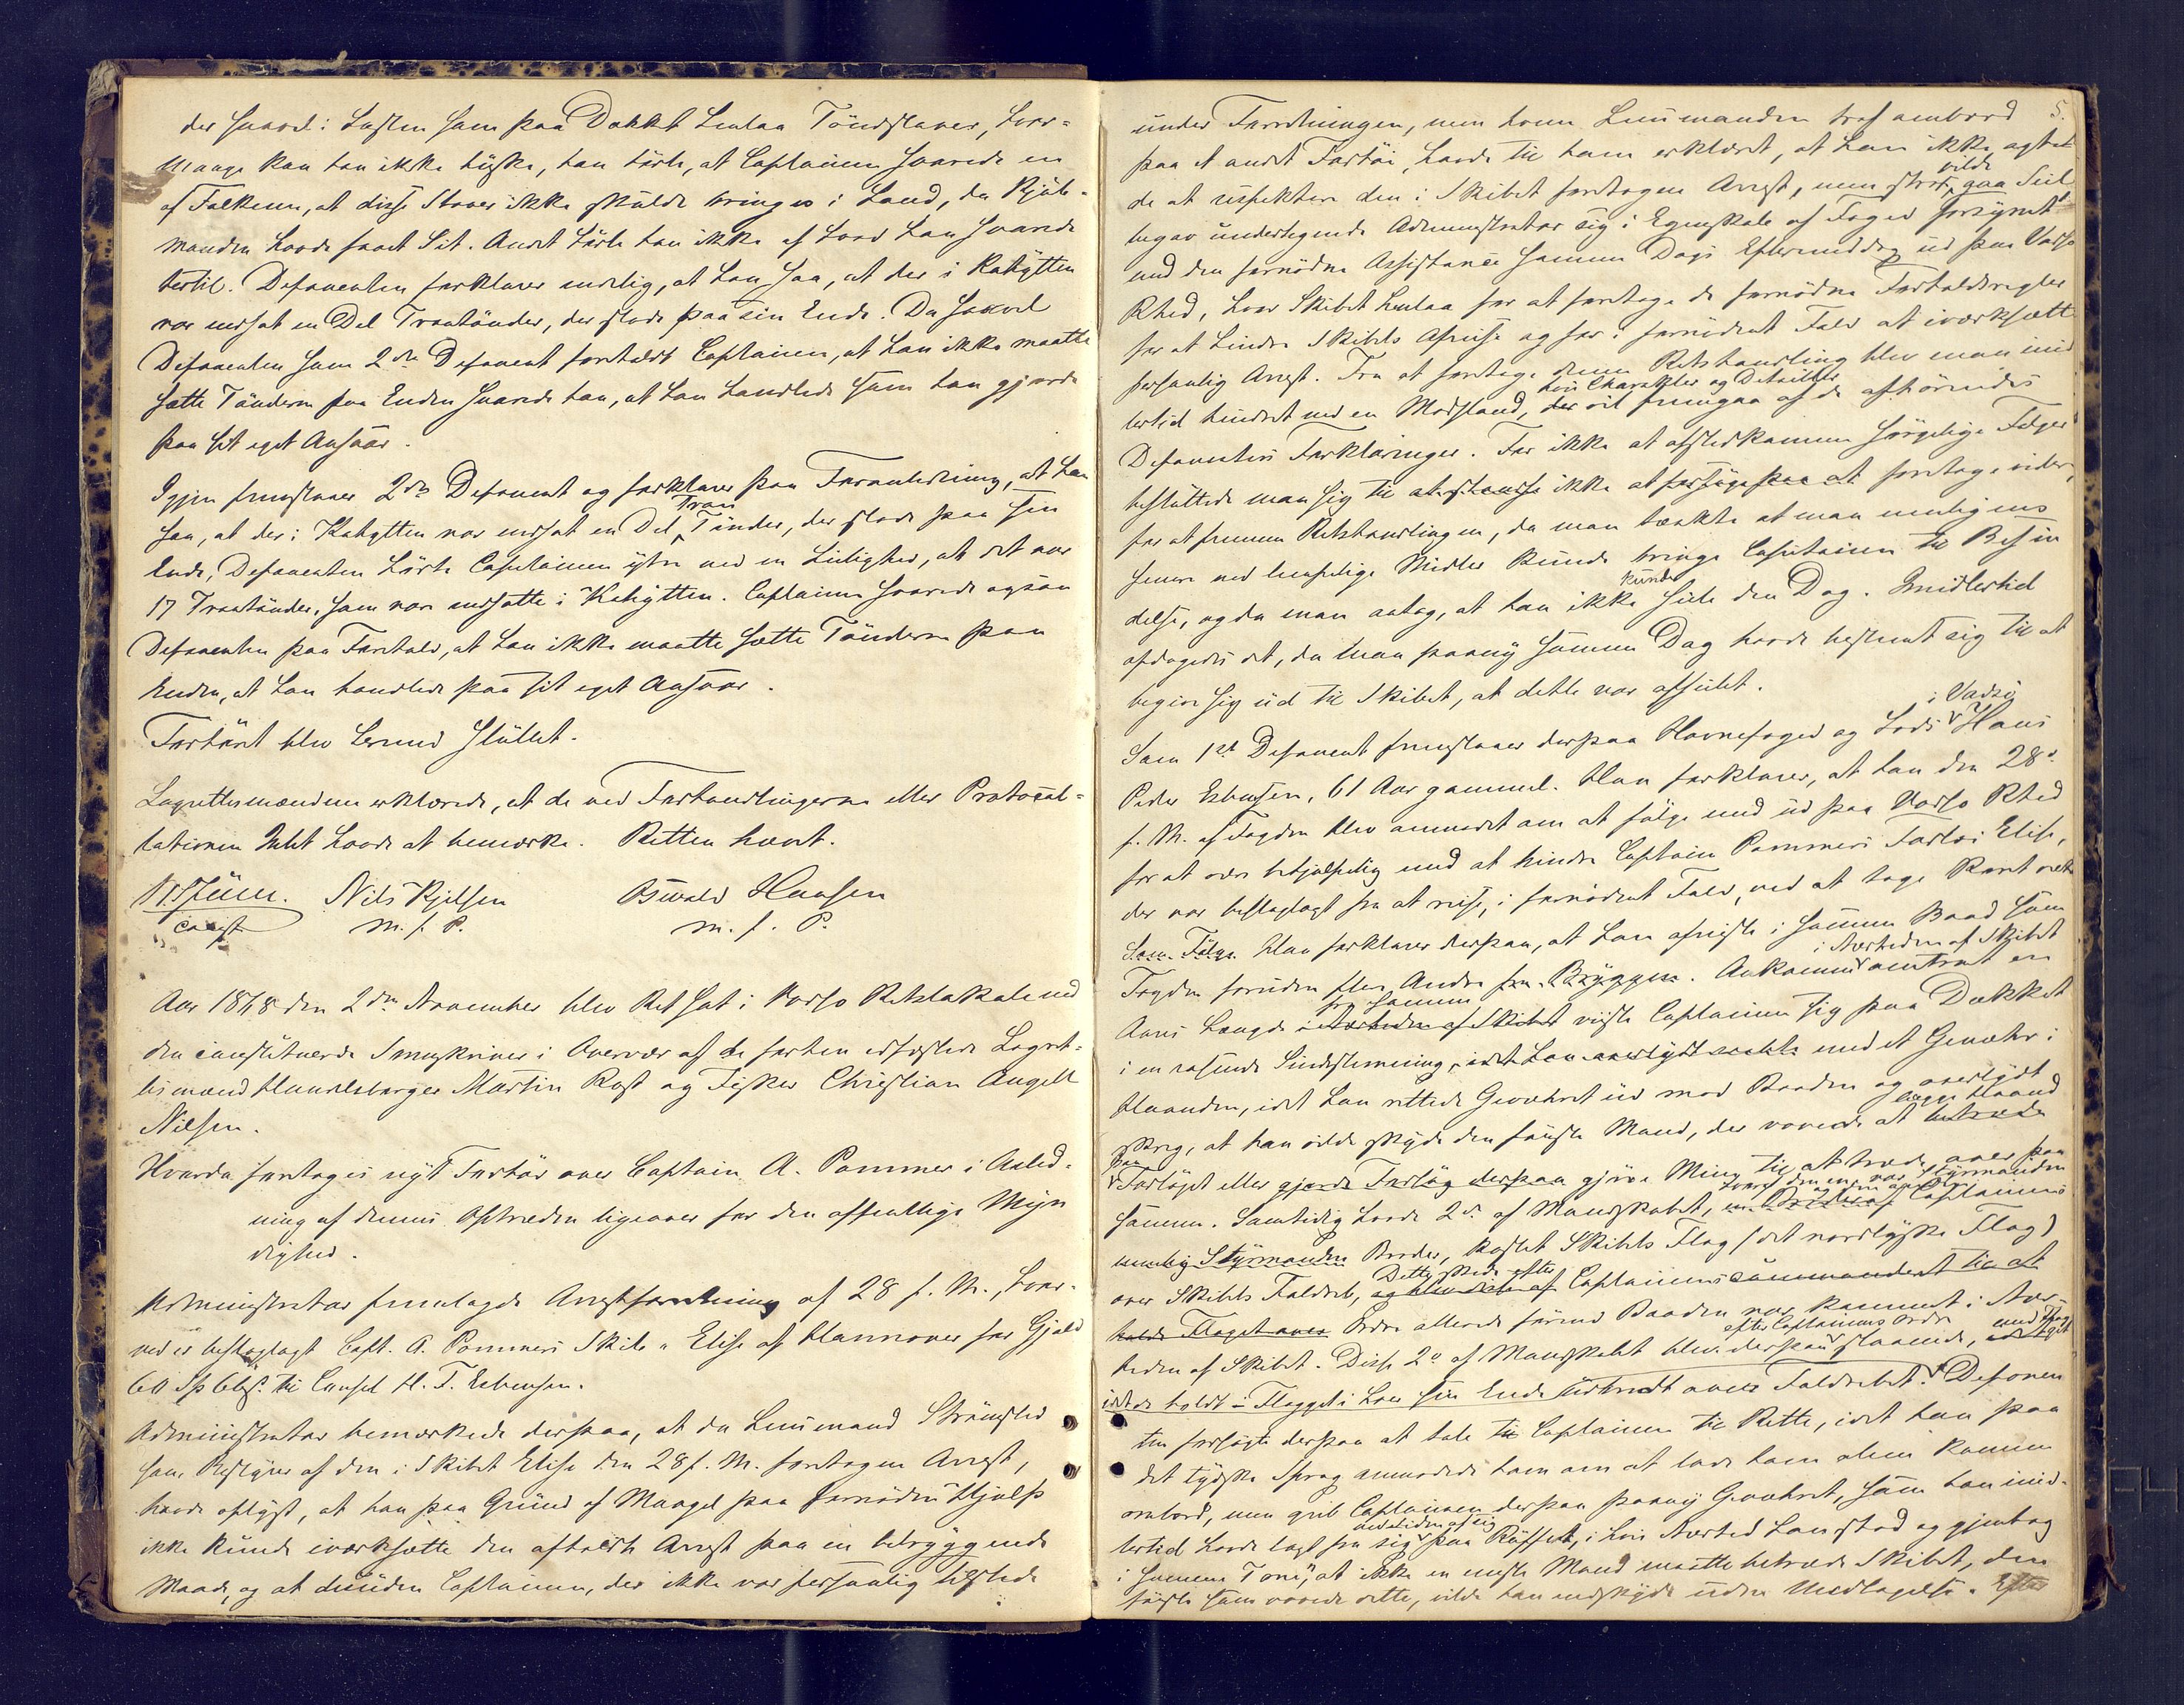 der saavel i Lasten som paa Dækket henlaa Töndstaver, hvor-
mange kan han ikke huske, han hörte, at Captainen svarede en
af Folkene, at disse Staver ikke skulde bringes i Land, da Kjöb-
manden havde faaet Sit. Andet hörte han ikke af hvad han svarede
hertil. Deponenten forklarer endelig, at han saa, at der i Kahytten
var indsat en Del Trantönder, der stode paa sin Ende. Da saavel
Deponenten som 2den Deponent foreholdt Captainen, at han ikke maatte
sætte Tönderne paa Enden svarede han, at han handlede som han gjorde
paa sit eget Ansvar.
Igjen fremstaaer 2den Deponent og forklarer paa Foranledning, at han
Tran
saa, at der i Kahytten var indsat en Del Tönder, der stode paa sin
Ende, Deponenten hörte Captainen ytre ved en Leilighed, at det var
17 Trantönder, som vare indsatte i Kahytten. Captainen svarede ogsaa
Deponenten paa Forehold, at han ikke maatte sætte Tönderne paa
Enden, at han handlede paa sit eget Ansvar.
Forhöret blev hermed sluttet.
Lagrettesmændene erklærede, at de ved Forhandlingerne eller Protocol-
lationen Intet havde at bemærke. Retten hævet.
Nils Kjelsen Oswald Hansen
const. m. f. P. m. f. P.
Aar 1868 den 2den November blev Ret sat i Vadsö Retslokale ved
den constituerede Sorenskriver i Overvær af de forhen edfæstede Lagret-
tesmænd Handelsborger Martin Rost og Fisker Christian Angell
Nilsen.
Hvorda foretoges nyt Forhör over Captain A. Pommer i Anled-
ning af dennes Optræden ligeover for den offentlige Myn
dighed.
Administrator fremlagde Arrestforretning af 28 f. M., hvor-
ved er beslaglagt Capt. A. Pommers Skib "Elise af Hannover for Gjæld
til Consul H. T. Esbensen.
Administrator bemærkede derpaa, at da Lensmand Strömsted
som Bestyrer af den i Skibet Elise den 28 f. M. foretagne Arrest,
havde oplyst, at han paa Grund af Mangel paa fornöden Hjælp
ikke kunde iværksætte den afholdte Arrest paa en betryggende
Maade, og at desuden Captainen, der ikke var personlig tilstede
5.
under Forretningen, men hvem Lensmanden traf ombord
paa et andet Fartöi, havde til ham erklæret, at han ikke agte-
vilde
de at respektere den i Skibet foretagne Arrest, men strax gaa Seil
begav undertegnede Administrator sig i Egenskab af Foged forsynet
med den fornödne Assistance samme Dags Eftermiddag ud paa Vadsö
Rhed, hvor Skibet henlaa for at foretage de fornödne Forholdsregler
for at hindre Skibets Afreise og for i fornödent Fald at iværksætte
personlig Arrest. Fra at foretage denne Retshandling blev man imid
hvis Charakter og Detailler
lertid hindret ved en Modstand, der vil fremgaa af de afhörendes
Deponenters Forklaringer. For ikke at afstedkomme sörgelige Fölger
besluttede man sig til ikke at foretage videre
for at fremme Retshandlingen, da man tænkte at man muligens
senere ved lempelige Midler kunde bringe Captainen til Besin
kunde
delse, og da man antog, at han ikke seile den Dag. Imidlertid
opdagedes det, da man paany samme Dag havde bestemt sig til at
begive sig ud til Skibet, at dette var afseilet.
i Vadsö
Som 1ste Deponent fremstaaer derpaa Havnefoged og Lods Hans
Peder Esbensen, 61 Aar gammel. Han forklarer, at han den 28de
f. M. af Fogden blev anmodet om at fölge med ud paa Vadsö Rhed
for at være behjælpelig med at hindre Captain Pommers Fartöi Elise,
der var beslaglagt fra at reise, i fornödent Fald, ved at tage Roret
Han forklarer derpaa, at han afreiste i samme Baad som
i Nærheden af Skibet
Fogden foruden flere Andre fra Bryggen. Ankommen omtrent en
fra samme
Aares Længde i Nærheden af Skibet viiste Captainen sig paa Dækket
i en rasende Sindsstemning, med et Gevæhr i
Haanden, idet han rettede Gevæhret ud mod Baaden og overlydt
lægge Haand
skreg, at han vilde skyde den förste Mand, der vovede at betræde
paa
Fartöiet eller gjorde Forsög derpaa gjöre Mine til at træde over paa
hvoraf den ene var Styrmanden
samme. Samtidig havde 2de af Mandskabet, Captainens
nemlig Styrmanden Broder, kastet Skibets Flag (det nordtyske Flag)
Dette skede efter
over Skibets Faldreb, Captainens commandert til at
holde Flaget over Ordre allerede förend Baaden var kommet i Nær-
efter Captainens Ordre med Flaget
heden af Skibet. Disse 2de af Mandskabet blev derpaa staaende,
idet de holdt Flagget i hver sin Ende udbredt over Faldrebet. Deponen
ten forsögte derpaa at tale Captainen til Rette, idet han paa
det tydske Sprog anmodede ham om at lade ham alene komme
ombord, men greb Captainen derpaa paany Gevæhret, som han imid-
ved Siden af sig
lertid havde lagt fra sig paa Röffet, i hvis Nærhed han stod og gjentog
i samme Tone, at ikke en eneste Mand maatte betræde Skibet, den
förste som vovede dette, vilde han nedskyde uden Undtagelse. Efter